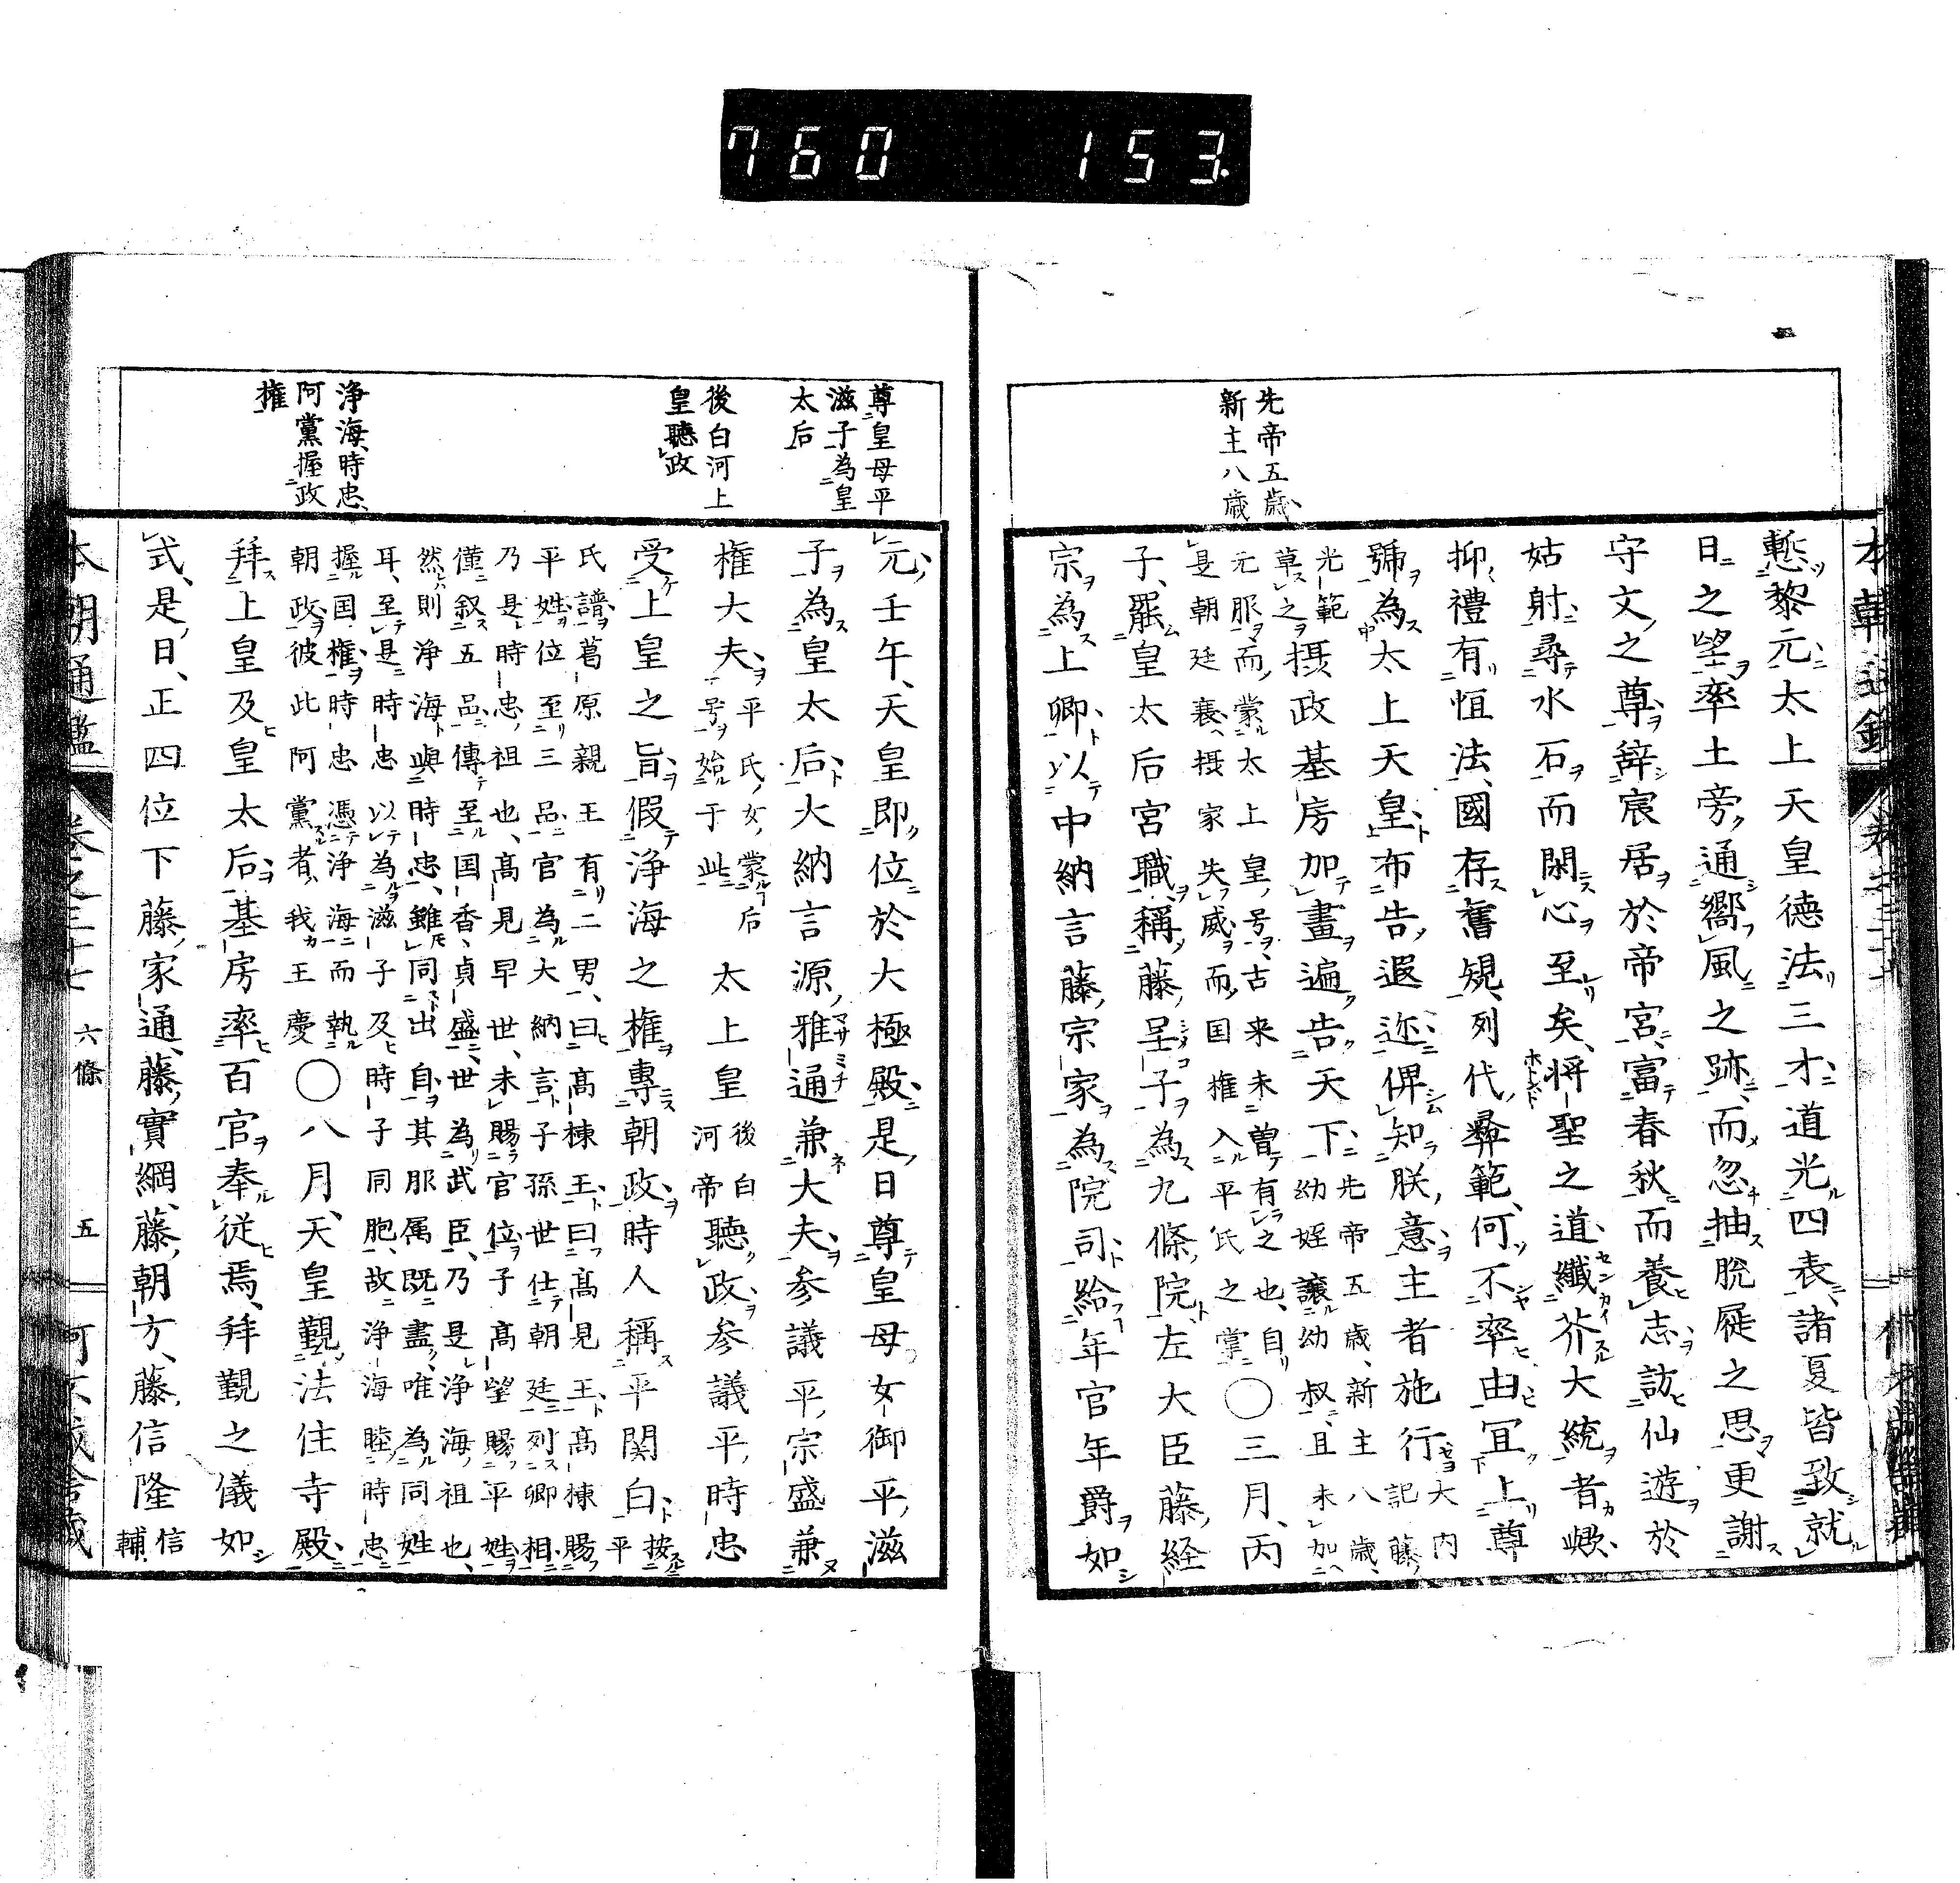 760 153
先帝五歳、
新主八歳
慙黎元太上天皇德法三才道光四表諸夏皆致就
日之望率土旁通嚮風之跡而忽抽脫屣之思更謝
守文之尊辭宸居於帝宮富春秋而養志訪仙遊於
姑射尋水石而閑心至矣將聖之道纖芥大統者歟
抑禮有恒法國存舊規列代彝範何不率由冝上尊
號為太上天皇布告遐迩俾知朕意主者施行大内記藤
光範草之摂政基房加畫遍告天下先帝五歳、新主八歳、幼姪譲幼叔、且未加
元服而蒙太上皇号、古来未曽有之也、自
是朝廷衰摂家失威而国権入平氏之掌○三月、丙
子、罷皇太后宮職、稱藤呈子為九條院、左大臣藤経
宗為上卿以中納言藤宗家為院司給年官年爵如
尊皇母平
滋子為皇
太后
後白河上
皇聽政
浄海、時忠、
阿黨握政
權
元、壬午、天皇即位於大極殿是日尊皇母女御平滋
子為皇太后大納言源雅通兼大夫参議平宗盛兼
権大夫平氏女蒙后号始于此太上皇後白河帝聽政参議平時忠
受上皇之旨假浄海之権專朝政時人稱平関白按平
氏譜葛原親王有二男、曰高棟王曰高見王高棟賜
平姓位至三品官為大納言子孫世仕朝廷列卿相
乃是時忠祖也、高見早世、未賜官位子高望賜平姓
僅叙五品傳至国香、貞盛、世為武臣、乃是浄海祖也、
然則浄海與時忠、雖同出自其服属既盡唯為同姓
耳、至是時忠以為滋子及時子同胞、故浄海睦時忠
握国権時忠憑浄海而執
朝政彼此阿黨者、我王慶○八月、天皇覲法住寺殿
拜上皇及皇太后基房率百官奉従焉、拜覲之儀如
式、是日、正四位下藤家通、藤實綱、藤朝方、藤信隆信輔
本朝通鑑 卷之三十七 六條 五